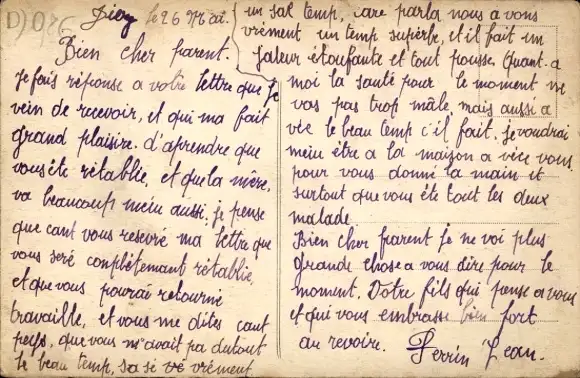 D)086
le 26
Bien cher parent.
Je fais réponse a votre lettre que je
vein de recevoir, et qui ma fait
grand plaisire. d'aprendre que
vous éte rétablie, et que la mère,
va beaucoup mein aussi; je pense
que cant vous reseuré ma lettre que
vous seré complètemant rétablie,
et que vous pouraì retourné
travaillé, et vous me dites cant
que vous m'avait pa dutout
le beau temp, sa si vé vrément
un sal temp, care parla nous a vons
vrément un temp superbe, et il fait un
jaleur étoufante et tout pousse. Quant-a
moi la santé pour le moment ne
vas pas trop mâle, mais aussi a
vée le beau temp c'il fait. je voudrai
mein être a la maison a vée vous,
pour vous donné la main et
surtout que vous éte tout les deux
malade
Bien cher parent je ne voi plus
grande chose a vous dire pour le
moment. Votre fils qui pense a vous
et qui vous embrasse bien fort
au revoire. Perrin Jean.